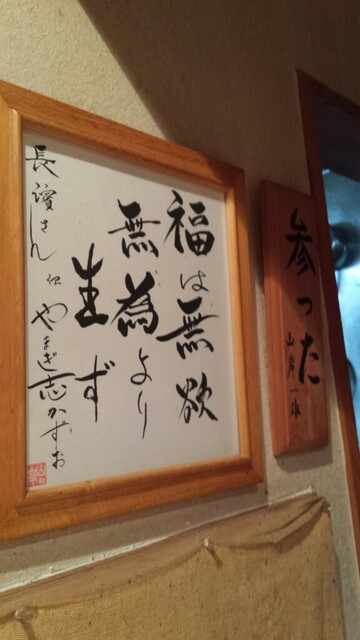 福は無欲
無為より
生ず
長濵さん江
やまぎ志かずお
参った
山岸一雄